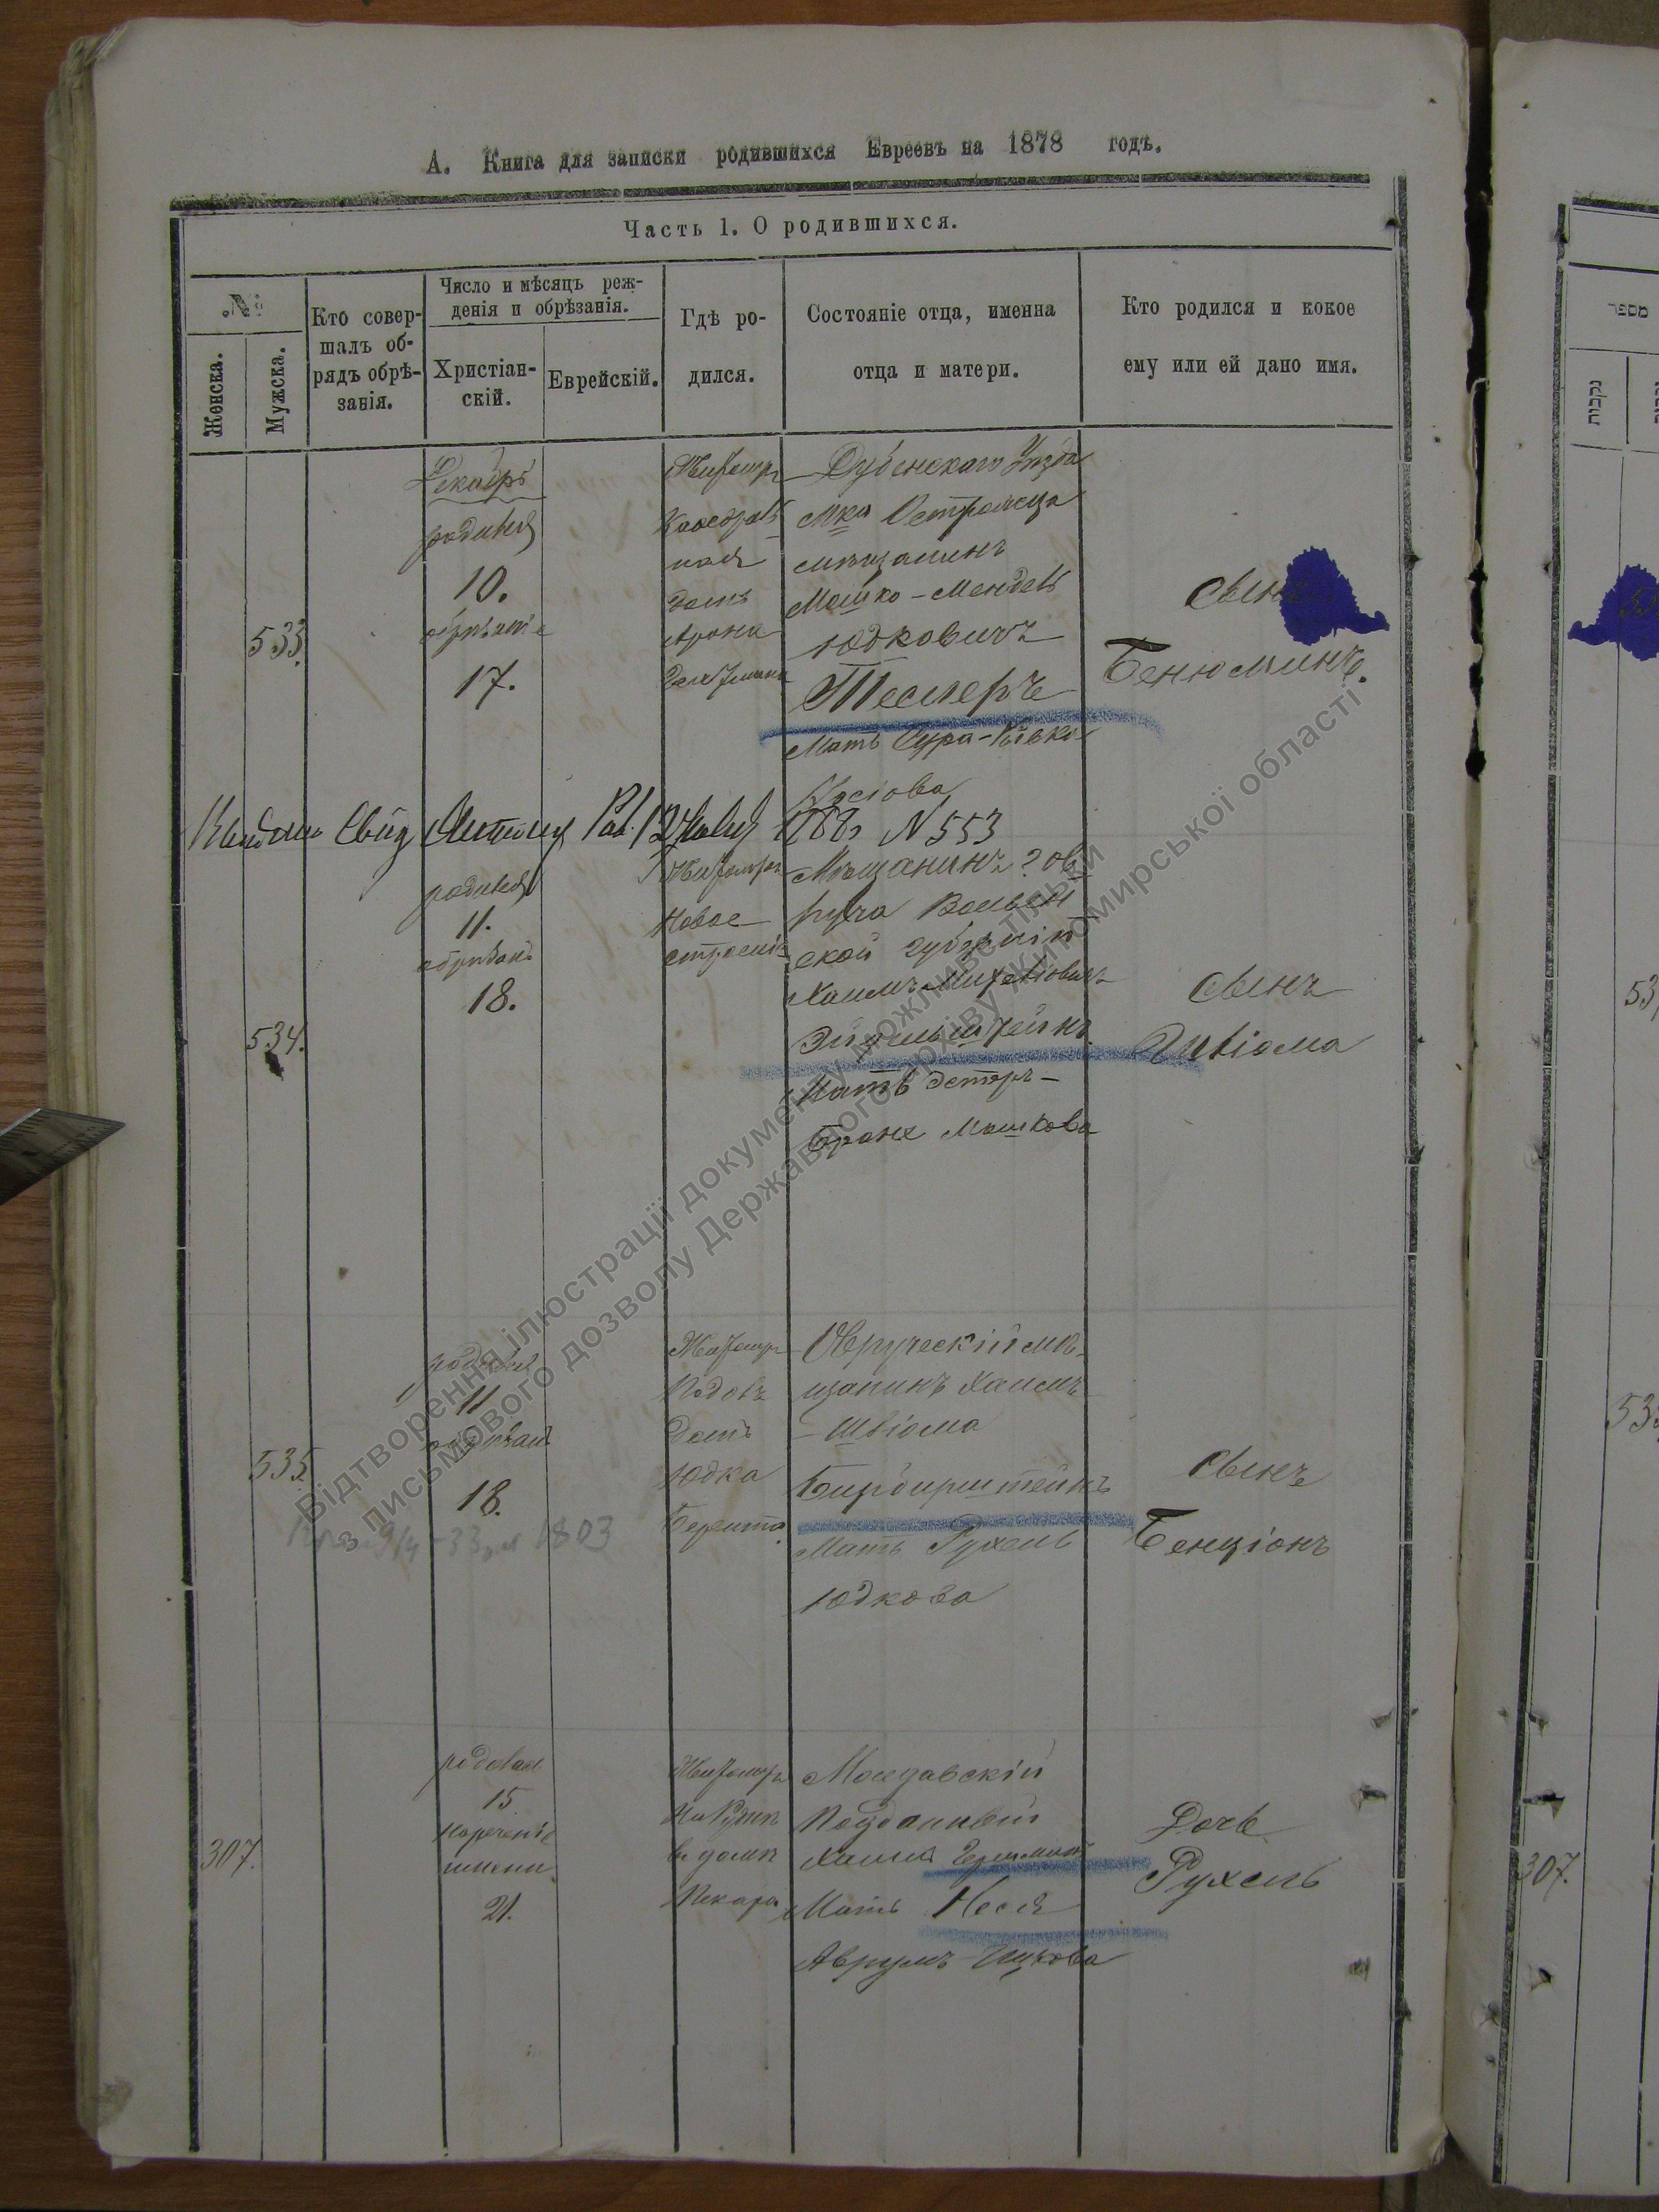 А. Книга для записки родившихся Евреевъ на 1878 годъ.
Часть 1. О родившихся.
№
Женска.
Мужска.
Кто совер-
шалъ об-
рядъ обрѣ-
занія.
Число и мѣсяцъ реж-
денія и обрѣзанія.
Христіан-
скій.
Еврейскій.
Гдѣ ро-
дился.
Состояніе отца, именна
отца и матери.
Кто родился и кокое
ему или ей дано имя.
533.
Декабрь
родился
10.
обрѣзанъ
17.
Житомръ
домъ
Арона
Дубенскаго Уѣзда
мка Остромеца
мѣщанинъ
Мошко-Мендель
Юдковичъ
Теслеръ
Мать Сура-Ривка
сынъ
Бенюминъ.
1880 N 553
534.
родился
11.
обрѣзанъ
18.
Житомръ
Новое
строеніе
Мѣщанинъ г. Ов
руча Волын
ской губерніи
Хаимъ
Эйдельштейнъ
Мать Эстеръ-
Мошкова
сынъ
535.
родился
11
обрѣзанъ
18.
Житомръ
домъ
Юдка
Овруческій мѣ-
щанинъ Хаимъ
-Шліома
Бирбирштейнъ
Мать Рухель
Юдкова
сынъ
Бенціонъ
307.
родилась
15
нареченіе
имени
21.
Житомръ
в домѣ
Пекара
Молдавскій
Подданный
Мать Неся
Аврумъ-Ицкова
Дочь
Рухель
Відтворення ілюстрації документу можливе тільки
з письмового дозволу Державного архіву Житомирської області
מספר
נקבות
307.